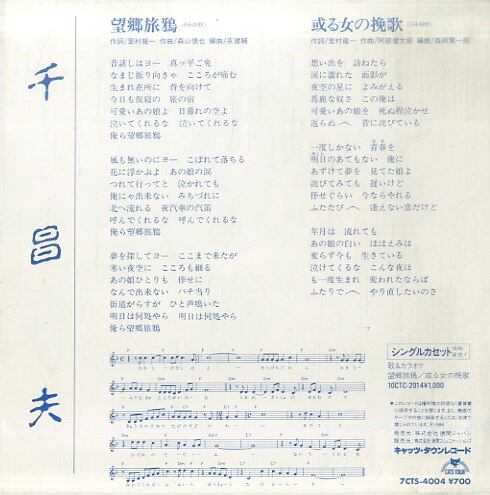 千昌夫
望郷旅鴉
作詞/里村龍一 作曲/森山慎也 編曲/京建輔
昔話しはヨー 真ッ平ご免
なまじ振り向きゃ こころが痛む
生まれ在所に 背を向けて
今日も仮寝の 旅の宿
可愛いあの娘よ 日暮れの空よ
泣いてくれるな 泣いてくれるな
俺ら望郷旅鴉
風も無いのにヨー こぼれて落ちる
花に浮かぶよ あの娘の涙
つれて行ってと 泣かれても
俺にゃ出来ない みちづれに
北へ流れる 夜汽車の汽笛
呼んでくれるな 呼んでくれるな
俺ら望郷旅鴉
夢を探してヨー ここまで来たが
寒い夜空に こころも細る
あの娘ひとりも 倖せに
なんで出来ない バチ当り
街道がらすが ひと声鳴いた
明日は何処やら 明日は何処やら
俺ら望郷旅鴉
或る女の挽歌
作詞/里村龍一 作曲/阿部健太郎 編曲/森岡賢一郎
想い出を 訪ねたら
涙に濡れた 面影が
夜空の星に よみがえる
馬鹿な奴さ この俺は
可愛いあの娘を 死ぬ程泣かせ
返らぬへ 昔に詫びている
一度しかない 青春を
明日のあてもない 俺に
あずけて夢を 見てた娘よ
詫びてみても 遅いけど
倖せぐらい 今ならやれる
ふたたびへ 逢えない恋だけど
年月は 流れても
あの娘の白い ほほえみは
変らず今も 生きている
泣けてくるな こんな夜は
も一度生まれ 変われたならば
ふたりでへ やり直したいのさ
シングルカセット 同時発売!
歌&カラオケ
望郷旅鴉/或る女の挽歌
10CTC-2014 ¥1,000
発売元:株式会社徳間ジャパン
キャッツ・タウンレコード
CATS TOWN
7CTS-4004 ¥700